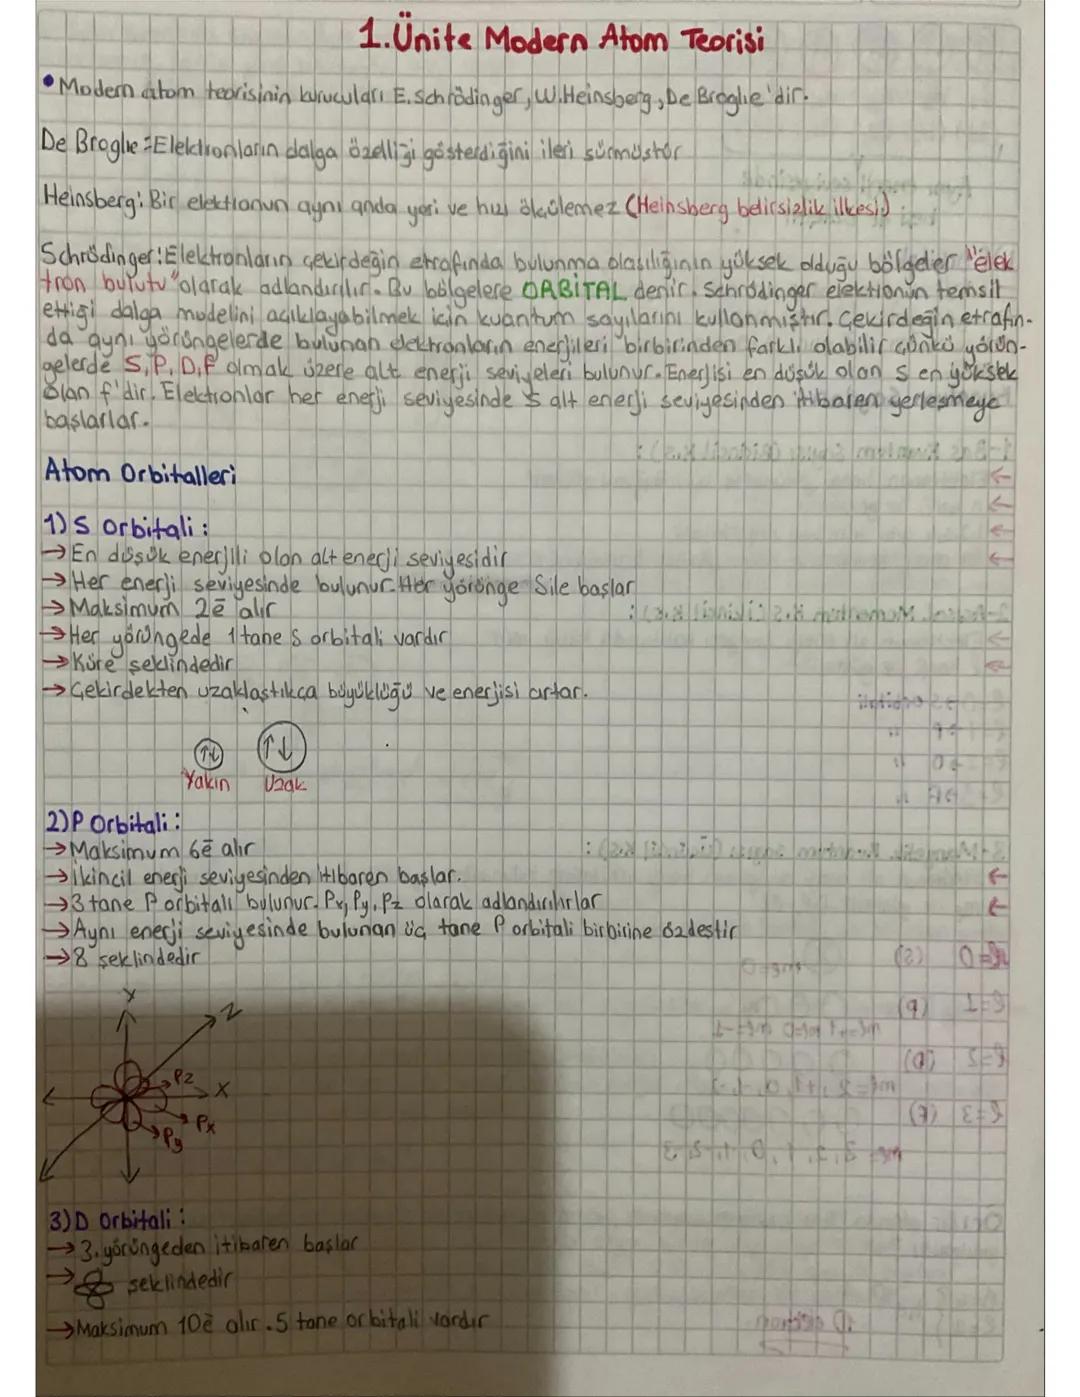 1.Ünite Modern Atom Teorisi
• Modern atom teorisinin kurucuları E.Schrödinger, W.Heinsberg, De Broglie'dir.
De Broglie:Elektronların dalga özelliği gösterdiğini ileri sürmüştür
Heinsberg: Bir elektronun aynı anda yeri ve hızı ölçülemez (Heinsberg belirsizlik ilkesi)
Schrödinger:Elektronların çekirdeğin etrafında bulunma olasılığının yüksek olduğu bölgeler "elek
tron bulutu" olarak adlandırılır. Bu bölgelere ORBİTAL denir. Schrödinger elektronun temsil
ettiği dalga modelini açıklayabilmek için kuantum sayılarını kullanmıştır. Çekirdeğin etrafın-
da aynı yörüngelerde bulunan elektronların enerjileri birbirinden farklı olabilir çünkü yörün-
gelerde S,P,D,F olmak üzere alt enerji seviyeleri bulunur. Enerjisi en düşük olan S en yüksek
olan f'dir. Elektronlar her enerji seviyesinde S alt enerji seviyesinden itibaren yerleşmeye
başlarlar.
Atom Orbitalleri
1) S Orbitali :
→ En düşük enerjili olan alt enerji seviyesidir
→ Her enerji seviyesinde bulunur. Her yörünge S ile başlar
→ Maksimum 2ē alır
→ Her yörüngede 1 tane S orbitali vardır
→ Küre şeklindedir
→ Çekirdekten uzaklaştıkça büyüklüğü ve enerjisi artar.
↑↓ ↑↓
Yakın Uzak
2)P Orbitali :
→ Maksimum 6ē alır
→ İkincil enerji seviyesinden itibaren başlar.
→ 3 tane P orbitali bulunur. Px, Py, Pz olarak adlandırılırlar
→ Aynı enerji seviyesinde bulunan üç tane P orbitali birbirine özdeştir
→ 8 şeklindedir
Y
Z
Pz
X
Px
Py
3)D Orbitali :
→ 3. yörüngeden itibaren başlar
→ şeklindedir
→ Maksimum 10ē alır. 5 tane orbitali vardır